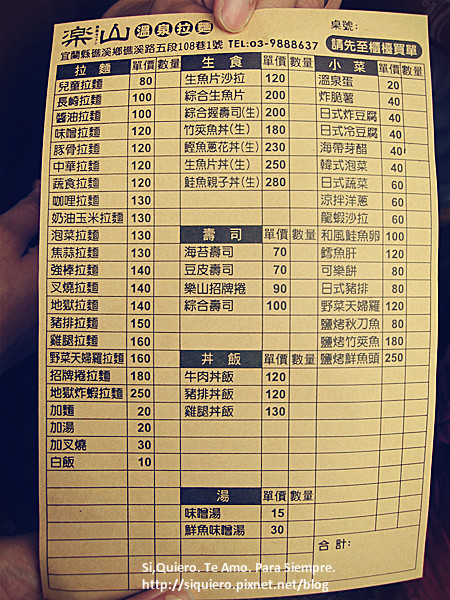 桌號:
樂山 溫泉拉麵
宜蘭縣礁溪鄉礁溪路五段108巷1號 TEL:03-9888637 請先至櫃檯買單
拉麵 單價 數量
兒童拉麵 80
長崎拉麵 100
醬油拉麵 100
味噌拉麵 120
豚骨拉麵 120
中華拉麵 120
蔬食拉麵 120
咖哩拉麵 130
奶油玉米拉麵 130
泡菜拉麵 130
焦蒜拉麵 130
強棒拉麵 140
叉燒拉麵 140
地獄拉麵 140
豬排拉麵 150
雞腿拉麵 160
野菜天婦羅拉麵 160
招牌捲拉麵 180
地獄炸蝦拉麵 250
加麵 20
加湯 20
加叉燒 30
白飯 10
生食 單價 數量
生魚片沙拉 120
綜合生魚片 200
綜合握壽司(生) 200
竹筴魚丼(生) 180
鰹魚蔥花丼(生) 230
生魚片丼(生) 250
鮭魚親子丼(生) 280
壽司 單價 數量
海苔壽司 70
豆皮壽司 70
樂山招牌捲 90
綜合壽司 100
丼飯 單價 數量
牛肉丼飯 120
豬排丼飯 120
雞腿丼飯 130
湯 單價 數量
味噌湯 15
鮮魚味噌湯 30
小菜 單價 數量
溫泉蛋 20
炸脆薯 40
日式炸豆腐 40
日式冷豆腐 40
海帶芽醋 40
韓式泡菜 40
日式蔬菜 60
涼拌洋蔥 60
龍蝦沙拉 60
和風鮭魚卵 100
鱈魚肝 120
可樂餅 80
日式豬排 80
野菜天婦羅 120
鹽烤秋刀魚 80
鹽烤竹筴魚 180
鹽烤鮮魚頭 250
合計:
Si,Quiero. Te Amo. Para Siempre.
http://siquiero.pixnet.net/blog